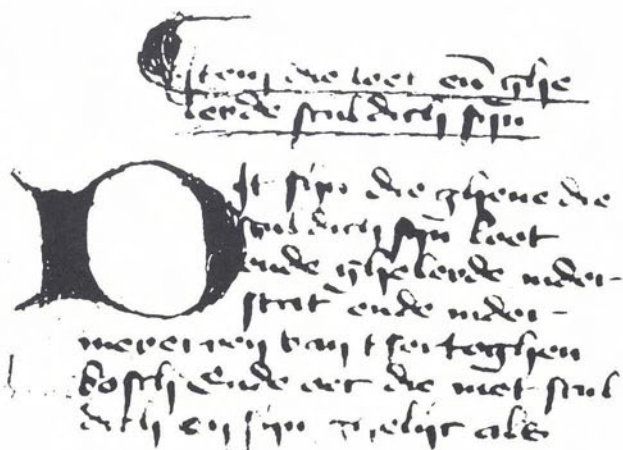 Item die loet en̄ ghe
leide sculdich sijn
Dit sijn die ghene die
sculdich sijn loet
ende gheleide inder
stat ende inder
meyerien van tsertoghen
bosch Ende oec die niet scul
dich en sijn ghelijc als